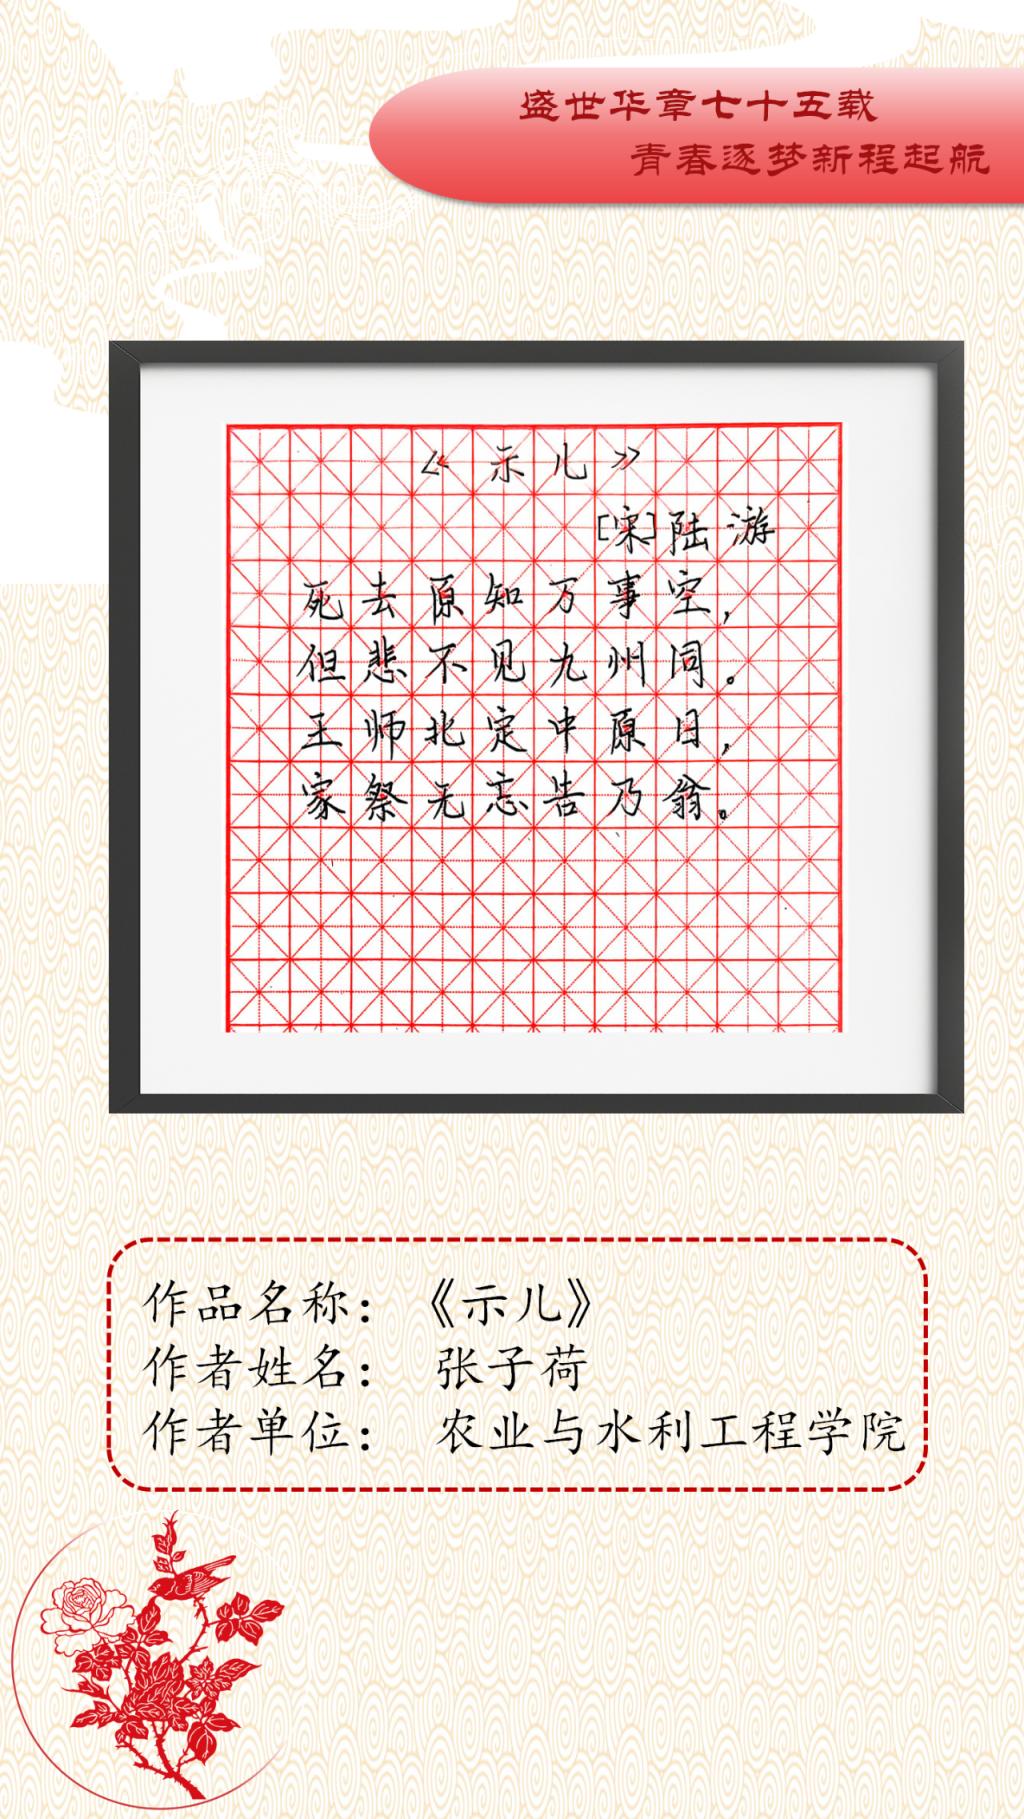 盛世华章七十五载
青春逐梦新程起航
《示儿》
[宋]陆游
死去原知万事空，
但悲不见九州同。
王师北定中原日，
家祭无忘告乃翁。
作品名称：《示儿》
作者姓名： 张子荷
作者单位： 农业与水利工程学院